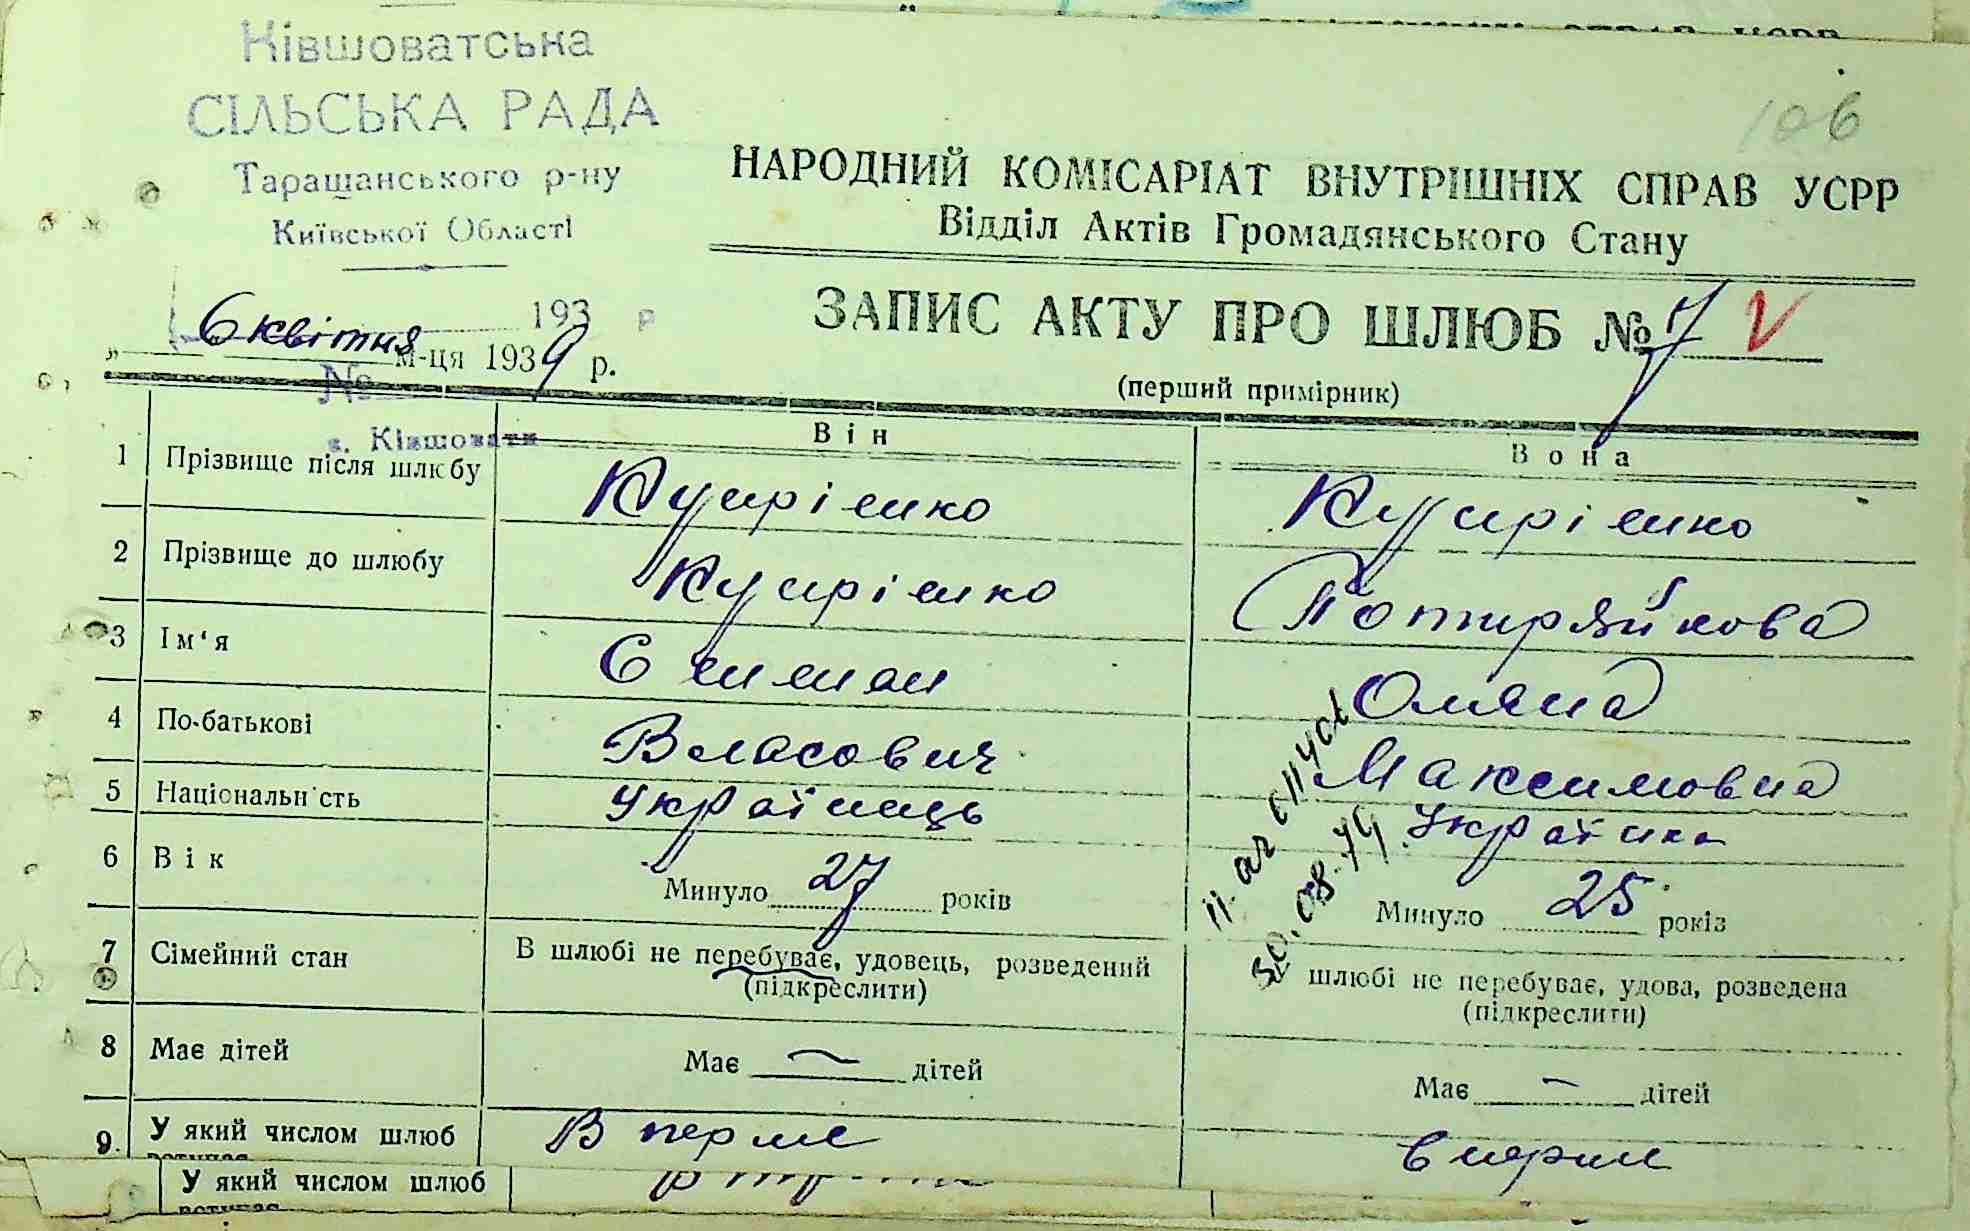 Ківшоватська
СІЛЬСЬКА РАДА
Таращанського р-ну
Київської Області
193 р
№
с. Ківшовати
106
НАРОДНИЙ КОМІСАРІАТ ВНУТРІШНІХ СПРАВ УСРР
Відділ Актів Громадянського Стану
„ 6 квітня м-ця 1939 р.
ЗАПИС АКТУ ПРО ШЛЮБ № 7 V
(перший примірник)
Він Вона
1 Прізвище після шлюбу Купрієнко Купрієнко
2 Прізвище до шлюбу Купрієнко Потирайкова
3 Ім‘я Симон Оляна
4 По-батькові Власович Максимовна
5 Національність Українець Українка
6 Вік Минуло 27 років Минуло 25 років
30.08.79.
7 Сімейний стан В шлюбі не перебуває, удовець, розведений шлюбі не перебуває, удова, розведена
(підкреслити) (підкреслити)
8 Має дітей Має — дітей Має - дітей
9. У який числом шлюб В перше вперше
У який числом шлюб